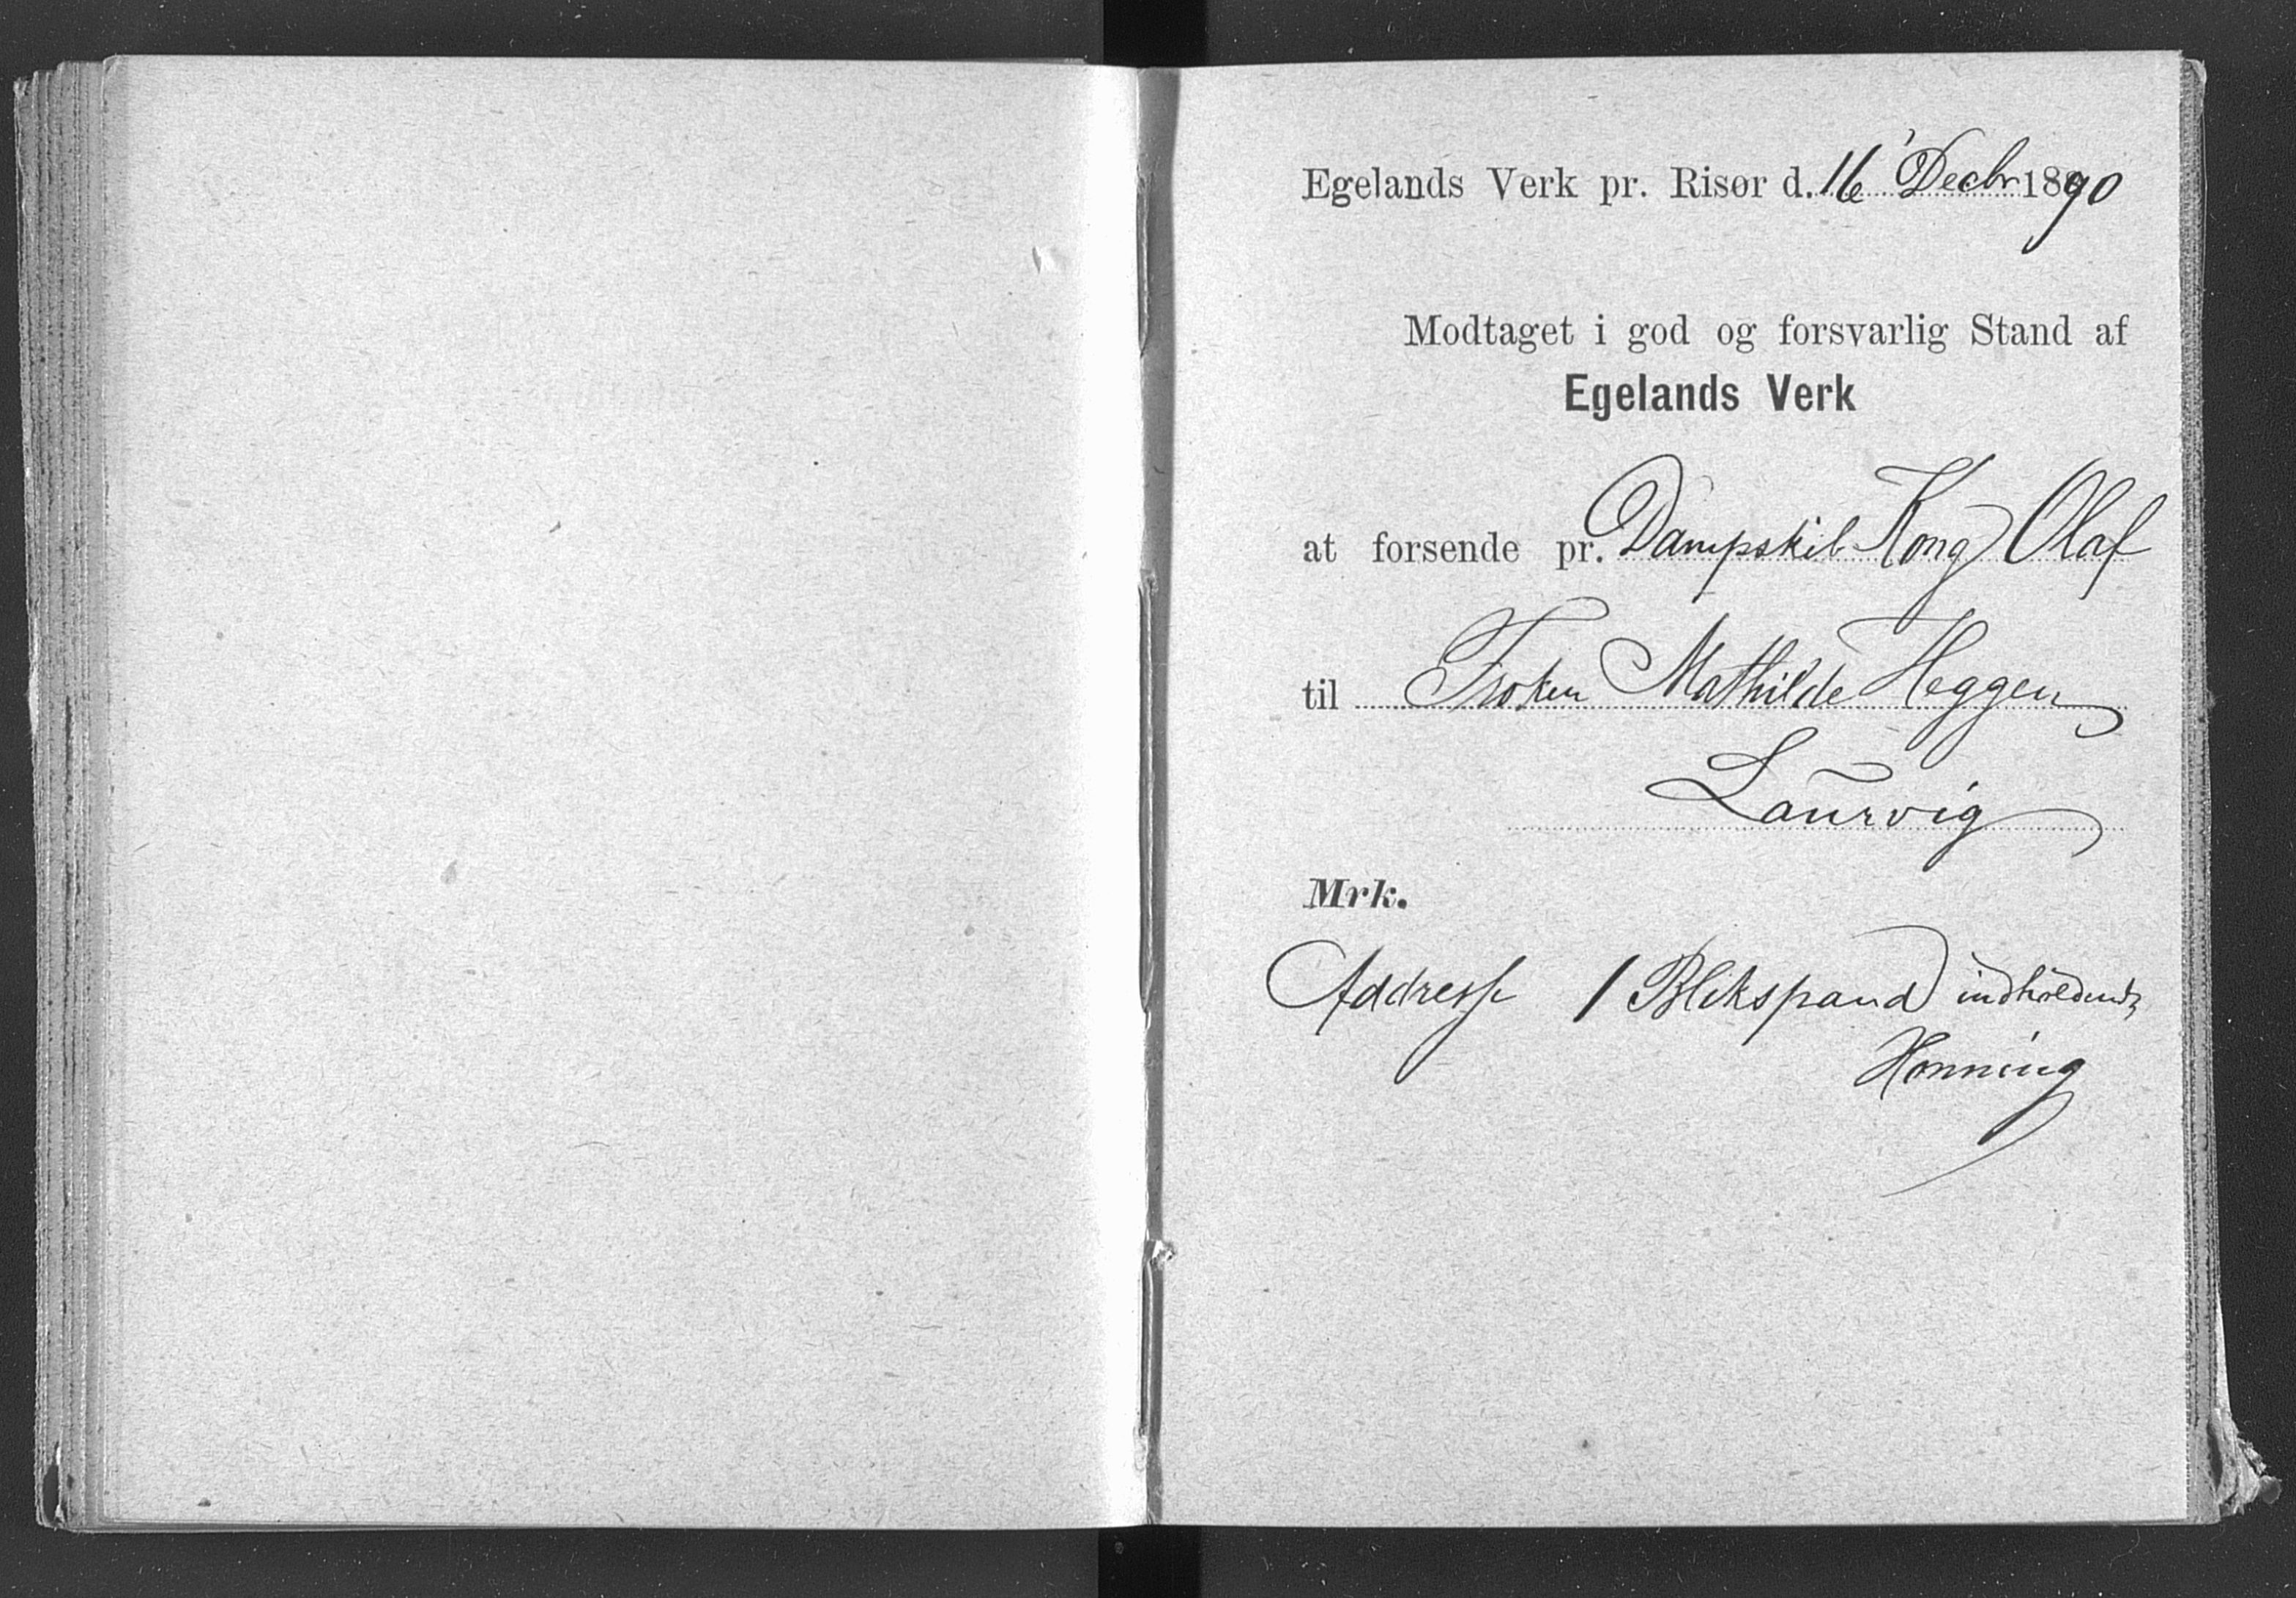 Egelands Verk pr. Risør d. 16 Decbr 1890
Modtaget i god og forsvarlig Stand af
Egelands Verk
at forsende pr. Dampskib Kong Olaf
til Frøken Mathilde Heggen
Laurvig
Mrk.
Addresse 1 Blikspand indholdende
Honning